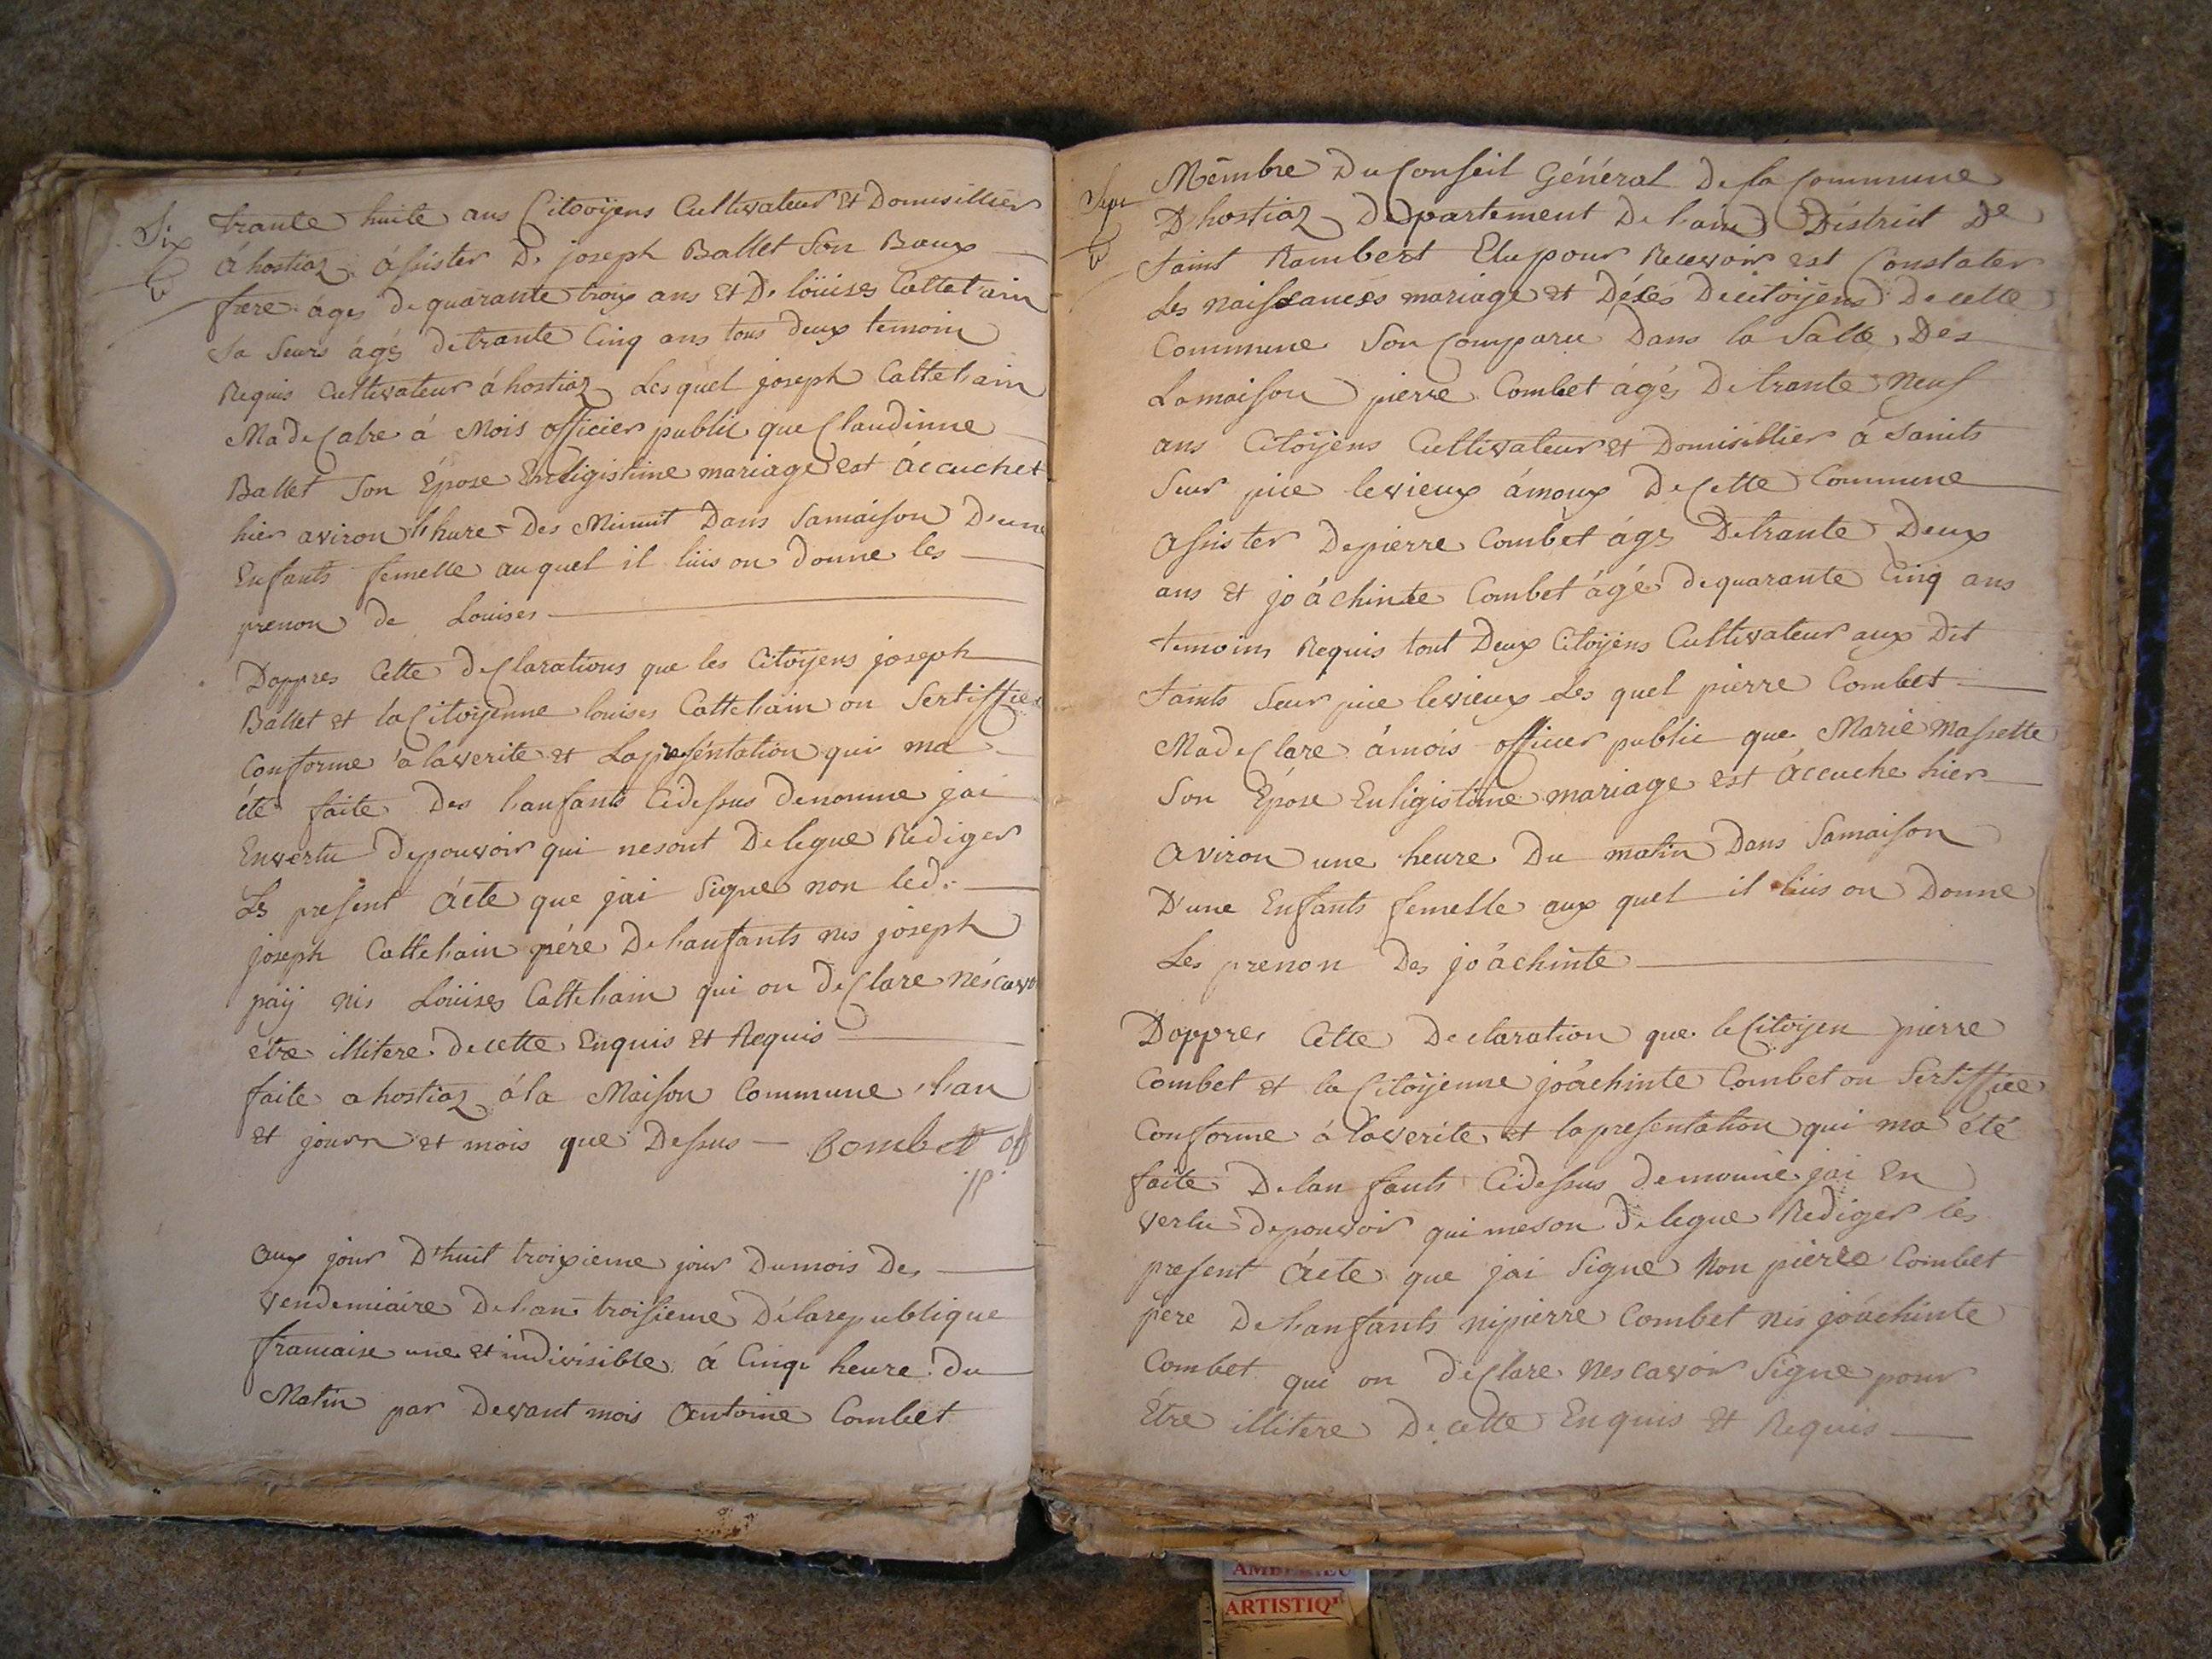 Six
trante huite ans Citoijens Cultivateur et Domisillier
á hostiaz. ássister De joseph Ballet Son Baux
frere áges de quarante troix ans et De loüises Calleťain
Sa Seurs ágés de trante Cinq ans tous deux temoin
Requis Cultivateur á hostiaz Lesquel joseph Calleťain
Ma declare á Mois officier public que Claudinne
Ballet Son Épose En ligistime mariage est áccuchet
hier aviron l'hure Des Minuit Dans Samaison D'une
Enfants femelle auquel il luis on donne les
prenon de Louises
Dappres Cette declarations que les Citoijens joseph
Ballet et la Citoijenne louises Calleťain on Sertiffies
Conforme á la verite et La presentation qui ma
été faite Des l'anfants Cidessus denomme jai
En vertu de pouvoir qui nesont Delegue Rediger
Les present Ácte que jai Signe non led.
joseph Calleťain pére De l'anfants nis joseph
paij nis Loüises Calleťain qui on declare néscavo
étre illitere de cette Enquis et Requis
faite a hostiaz á la Maison Commune l'an
et jour et mois que Dessus — Combet off
.p.
Aux jour D'huit troixieme jour Du mois Des
Vendemiaire De l'an troisieme Dé la republique
francaise une et indivisible á Cinq heure du
Matin par Devant mois Antoine Combet
Sept
Mémbre Du Conseil Général De la Commune
D'hostiaz Departement De l'ain District De
Saint Rambert Elu pour Recevoir est Constater
Les Naissances mariage et Déces De citoijens De cette
Commune Son Comparu Dans la Salle Des
La maison pierre Combet ágés De trante Neuf
ans Citoijens Cultivateur et Domisillier á Saints
Seur pice le vieux ámoux De cette Commune
Assister De pierre Combet ágés De trante Deux
ans et joáchinte Combet ágé de quarante Cinq ans
temoins Requis tout Deux Citoijens Cultivateur aux Dit
Saints Seur pice le vieux Les quel pierre Combet
Ma declare ámois officier public que Marie Massette
Son Épose En ligistime mariage est áccuché hier
Aviron une heure Du matin Dans Samaison
D'une Enfants femelle aux quel il luis on Donne
Les prenon Des joáchinte
Dappres Cette Declaration que le Citoijen pierre
Combet et la Citoijenne joáchinte Combet on Sertiffiee
Conforme á la verite et la presentation qui ma été
faite De lan fants Cidessus denommé jai En
vertu de pouvoir qui meson Delegue Rediger les
present Ácte que jai Signe Non pierre Combet
pere De l'anfants ni pierre Combet nis joáchinte
Combet qui on declare Nescavoir Signe pour
Étre illitere De cette Enquis et Requis
AMBERIEU
ARTISTIQ